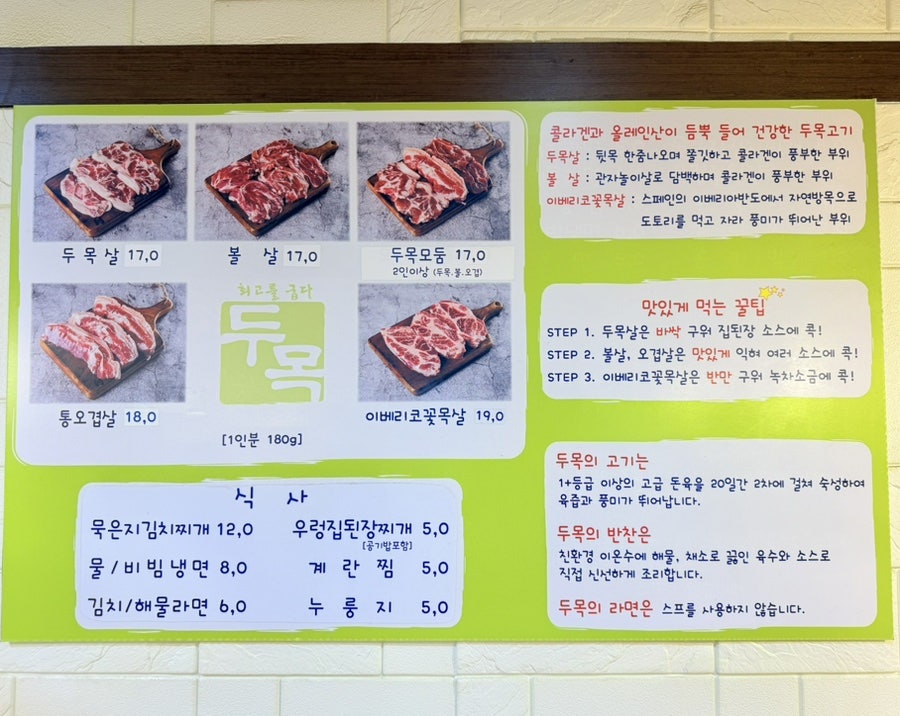 두목살 17,0
볼 살 17,0
두목모둠 17,0
2인이상 (두목.볼.오겹)
최고를 굽다
두목
통오겹살 18,0
이베리코꽃목살 19,0
[1인분 180g]
식 사
묵은지김치찌개 12,0
우렁집된장찌개 5,0
[공기밥포함]
물/비빔냉면 8,0
계 란 찜 5,0
김치/해물라면 6,0
누 룽 지 5,0
콜라겐과 올레인산이 듬뿍 들어 건강한 두목고기
두목살 : 뒷목 한줌나오며 쫄깃하고 콜라겐이 풍부한 부위
볼 살 : 관자놀이살로 담백하며 콜라겐이 풍부한 부위
이베리코꽃목살 : 스페인의 이베리아반도에서 자연방목으로
도토리를 먹고 자라 풍미가 뛰어난 부위
맛있게 먹는 꿀팁
STEP 1. 두목살은 바싹 구워 집된장 소스에 콕!
STEP 2. 볼살, 오겹살은 맛있게 익혀 여러 소스에 콕!
STEP 3. 이베리코꽃목살은 반만 구워 녹차소금에 콕!
두목의 고기는
1+등급 이상의 고급 돈육을 20일간 2차에 걸쳐 숙성하여
육즙과 풍미가 뛰어납니다.
두목의 반찬은
친환경 이온수에 해물, 채소로 끓인 육수와 소스로
직접 신선하게 조리합니다.
두목의 라면은 스프를 사용하지 않습니다.